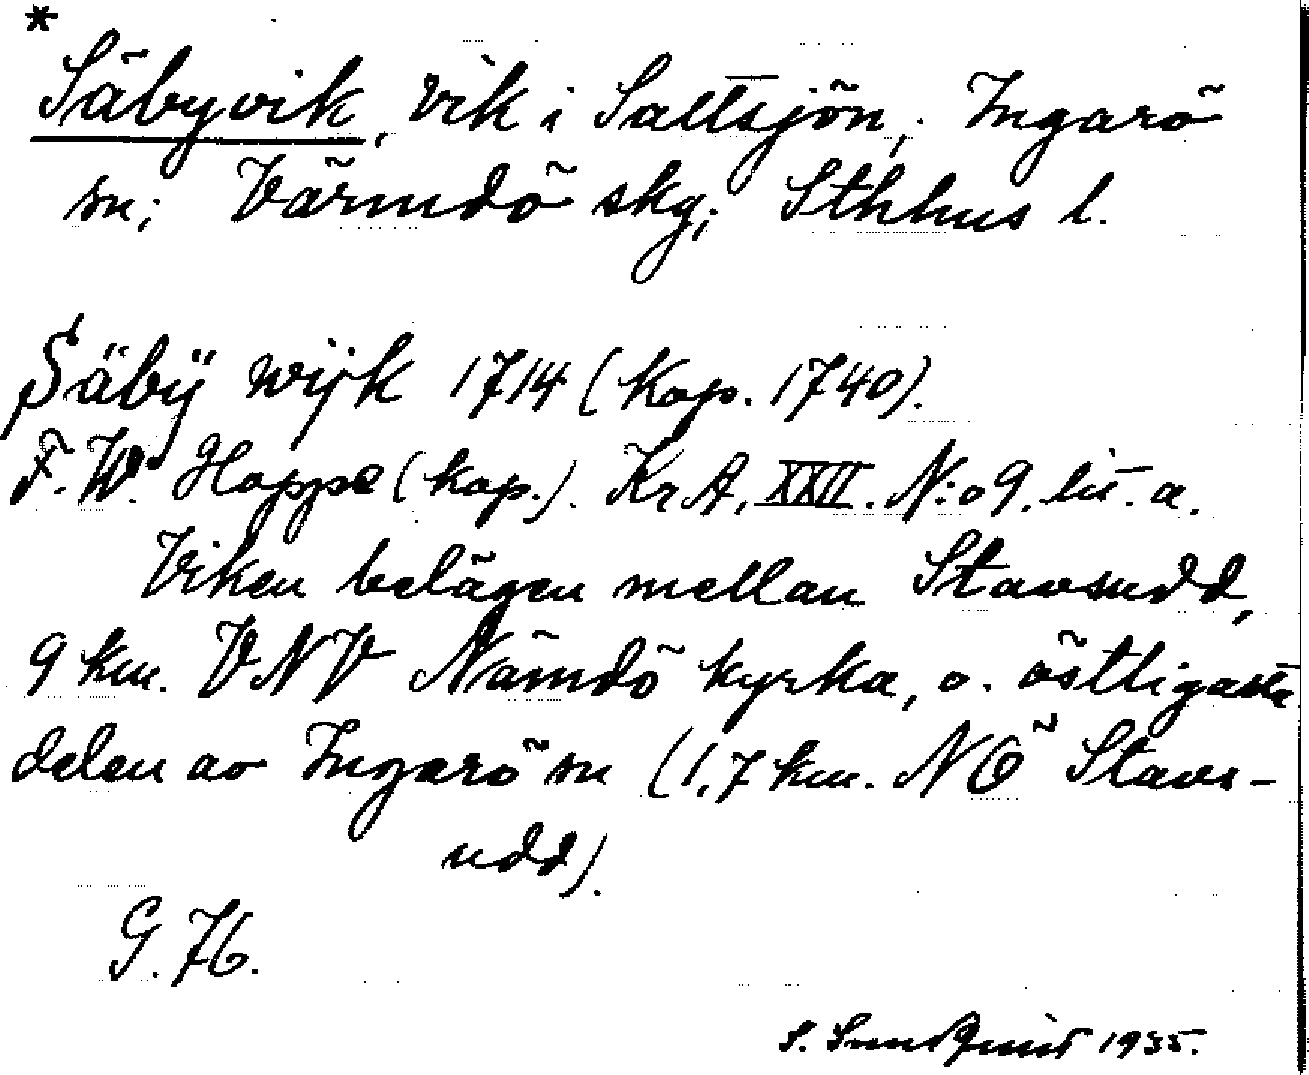 *
Säbyvik, vik i Saltsjön, Ingarö
sn; Värmdö skg; Sthlms l.
Säbÿ wijk 1714 (kop. 1740).
F.W. Hoppe (kop.). KrA, XXII. N:o 9. lit. a.
Viken belägen mellan Stavsudd,
9 km. VNV Nämdö kyrka, o. östligaste
delen av Ingarö sn (1,7 km. NÖ Stavs-
udd).
G. 76.
S. Sundquist 1935.